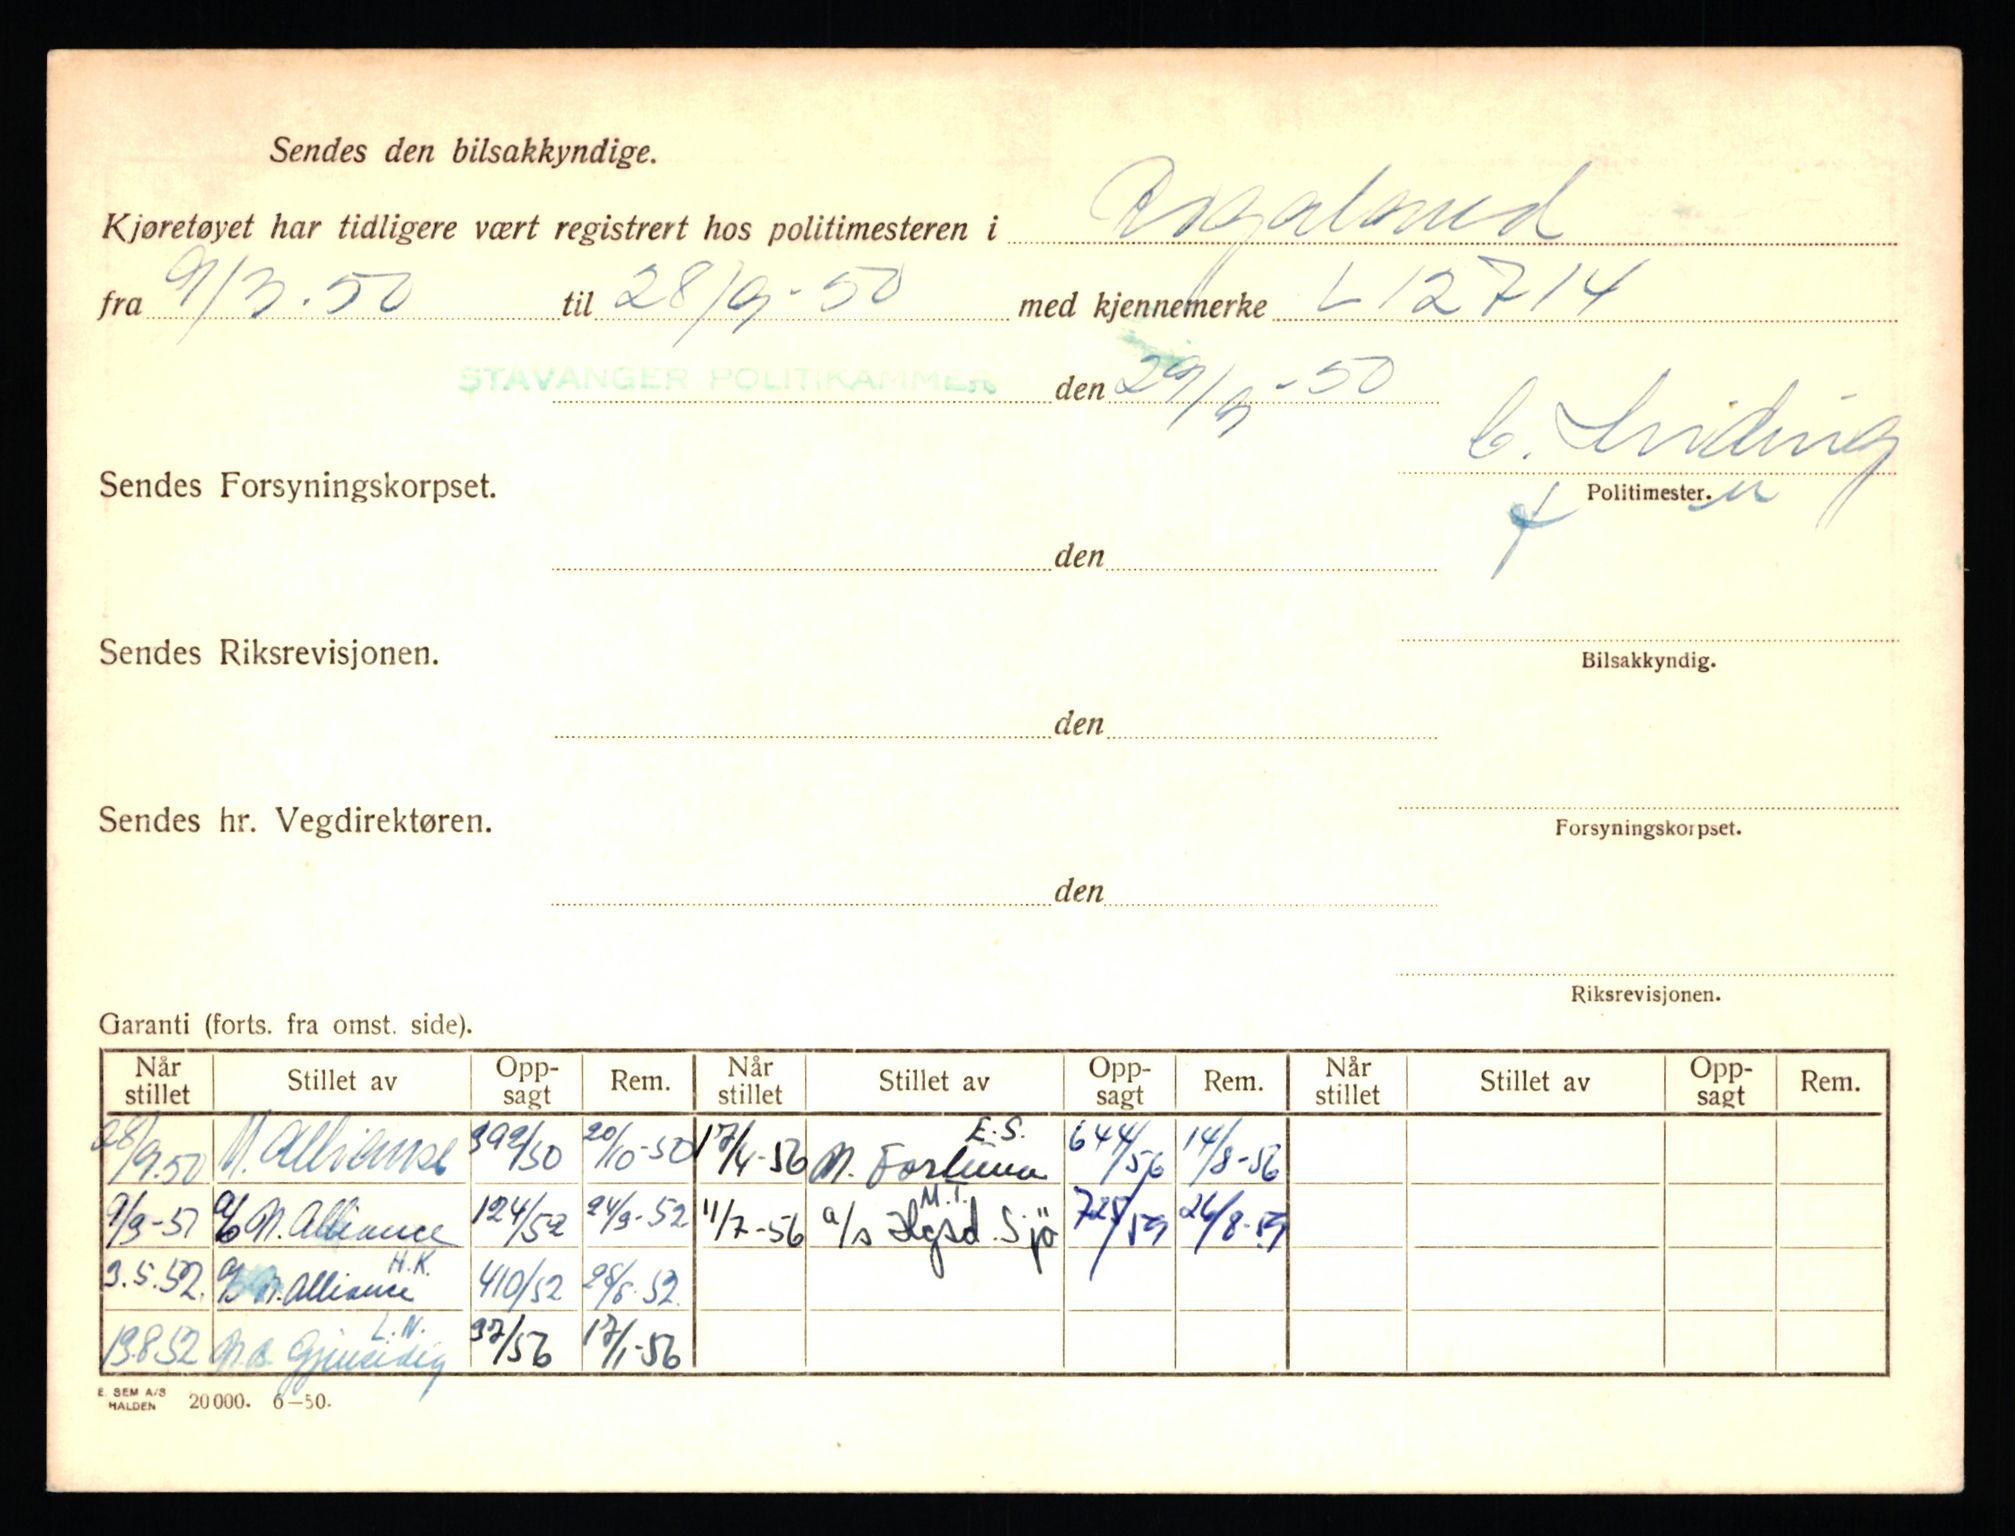 Sendes den bilsakkyndige.
Kjøretøyet har tidligere vært registrert hos politimesteren i Rogaland
fra 9/3.50 til 28/9-50 med kjennemerke L 12714
STAVANGER POLITIKAMMER den 29/9-50
Sendes Forsyningskorpset.
Politimester.
den
Sendes Riksrevisjonen.
Bilsakkyndig.
den
Sendes hr. Vegdirektøren.
Forsyningskorpset.
den
Riksrevisjonen.
Garanti (forts. fra omst. side).
Når stillet Stillet av Opp-sagt Rem. Når stillet Stillet av Opp-sagt Rem. Når stillet Stillet av Opp-sagt Rem.
28/9.50 N. Alliance 392/50 20/10-50 17/4-56 N. Fortuna E.S. 644/56 14/8-56
9/3-51 a/s N. Alliance 124/52 24/3-52 11/7-56 a/s Hgsd. Sjø M.T. 728/59 26/8-59
3.5.52. a/s N. Alliance H.K. 410/52 28/8-52
19.8.52 Gjensidig L.N. 37/56 17/1-56
E. SEM A/S
HALDEN 20000. 6-50.